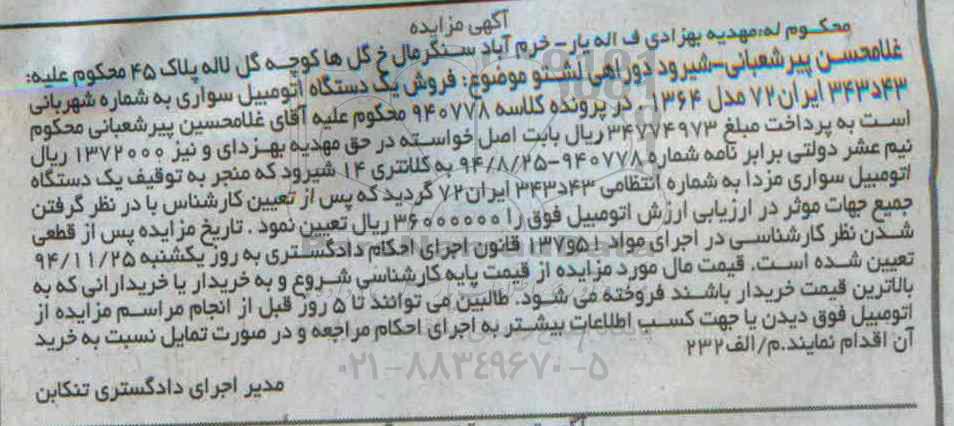 آگهی مزایده
محکوم له:مهدیه بهزادی ف اله یار- خرم آباد سنگرمال خ گل ها کوچه گل لاله پلاک ۴۵ محکوم علیه:
غلامحسن پیرشعبانی-شیرود دوراهی لشتو موضوع: فروش یک دستگاه اتومبیل سواری به شماره شهربانی
۴۳د۳۴۳ ایران۷۲ مدل ۱۳۶۴. در پرونده کلاسه ۹۴۰۷۷۸ محکوم علیه آقای غلامحسین پیرشعبانی محکوم
است به پرداخت مبلغ ۳۴۷۷۴۹۷۳ ریال بابت اصل خواسته در حق مهدیه بهزدای و نیز ۱۳۷۲۰۰۰ ریال
نیم عشر دولتی برابر نامه شماره ۹۴۰۷۷۸-۹۴/۸/۲۵ به کلانتری ۱۴ شیرود که منجر به توقیف یک دستگاه
اتومبیل سواری مزدا به شماره انتظامی ۴۳د۳۴۳ ایران۷۲ گردید که پس از تعیین کارشناس با در نظر گرفتن
جمیع جهات موثر در ارزیابی ارزش اتومبیل فوق را ۳۶۰۰۰۰۰۰ ریال تعیین نمود. تاریخ مزایده پس از قطعی
شدن نظر کارشناسی در اجرای مواد ۵۱و۱۳۷ قانون اجرای احکام دادگستری به روز یکشنبه ۹۴/۱۱/۲۵
تعیین شده است. قیمت مال مورد مزایده از قیمت پایه کارشناسی شروع و به خریدار یا خریدارانی که به
بالاترین قیمت خریدار باشند فروخته می شود. طالبین می توانند تا ۵ روز قبل از انجام مراسم مزایده از
اتومبیل فوق دیدن یا جهت کسب اطلاعات بیشتر به اجرای احکام مراجعه و در صورت تمایل نسبت به خرید
آن اقدام نمایند.م/الف۲۳۲
۰۲۱-۸۸۳۴۹۶۷۰-۵
مدیر اجرای دادگستری تنکابن